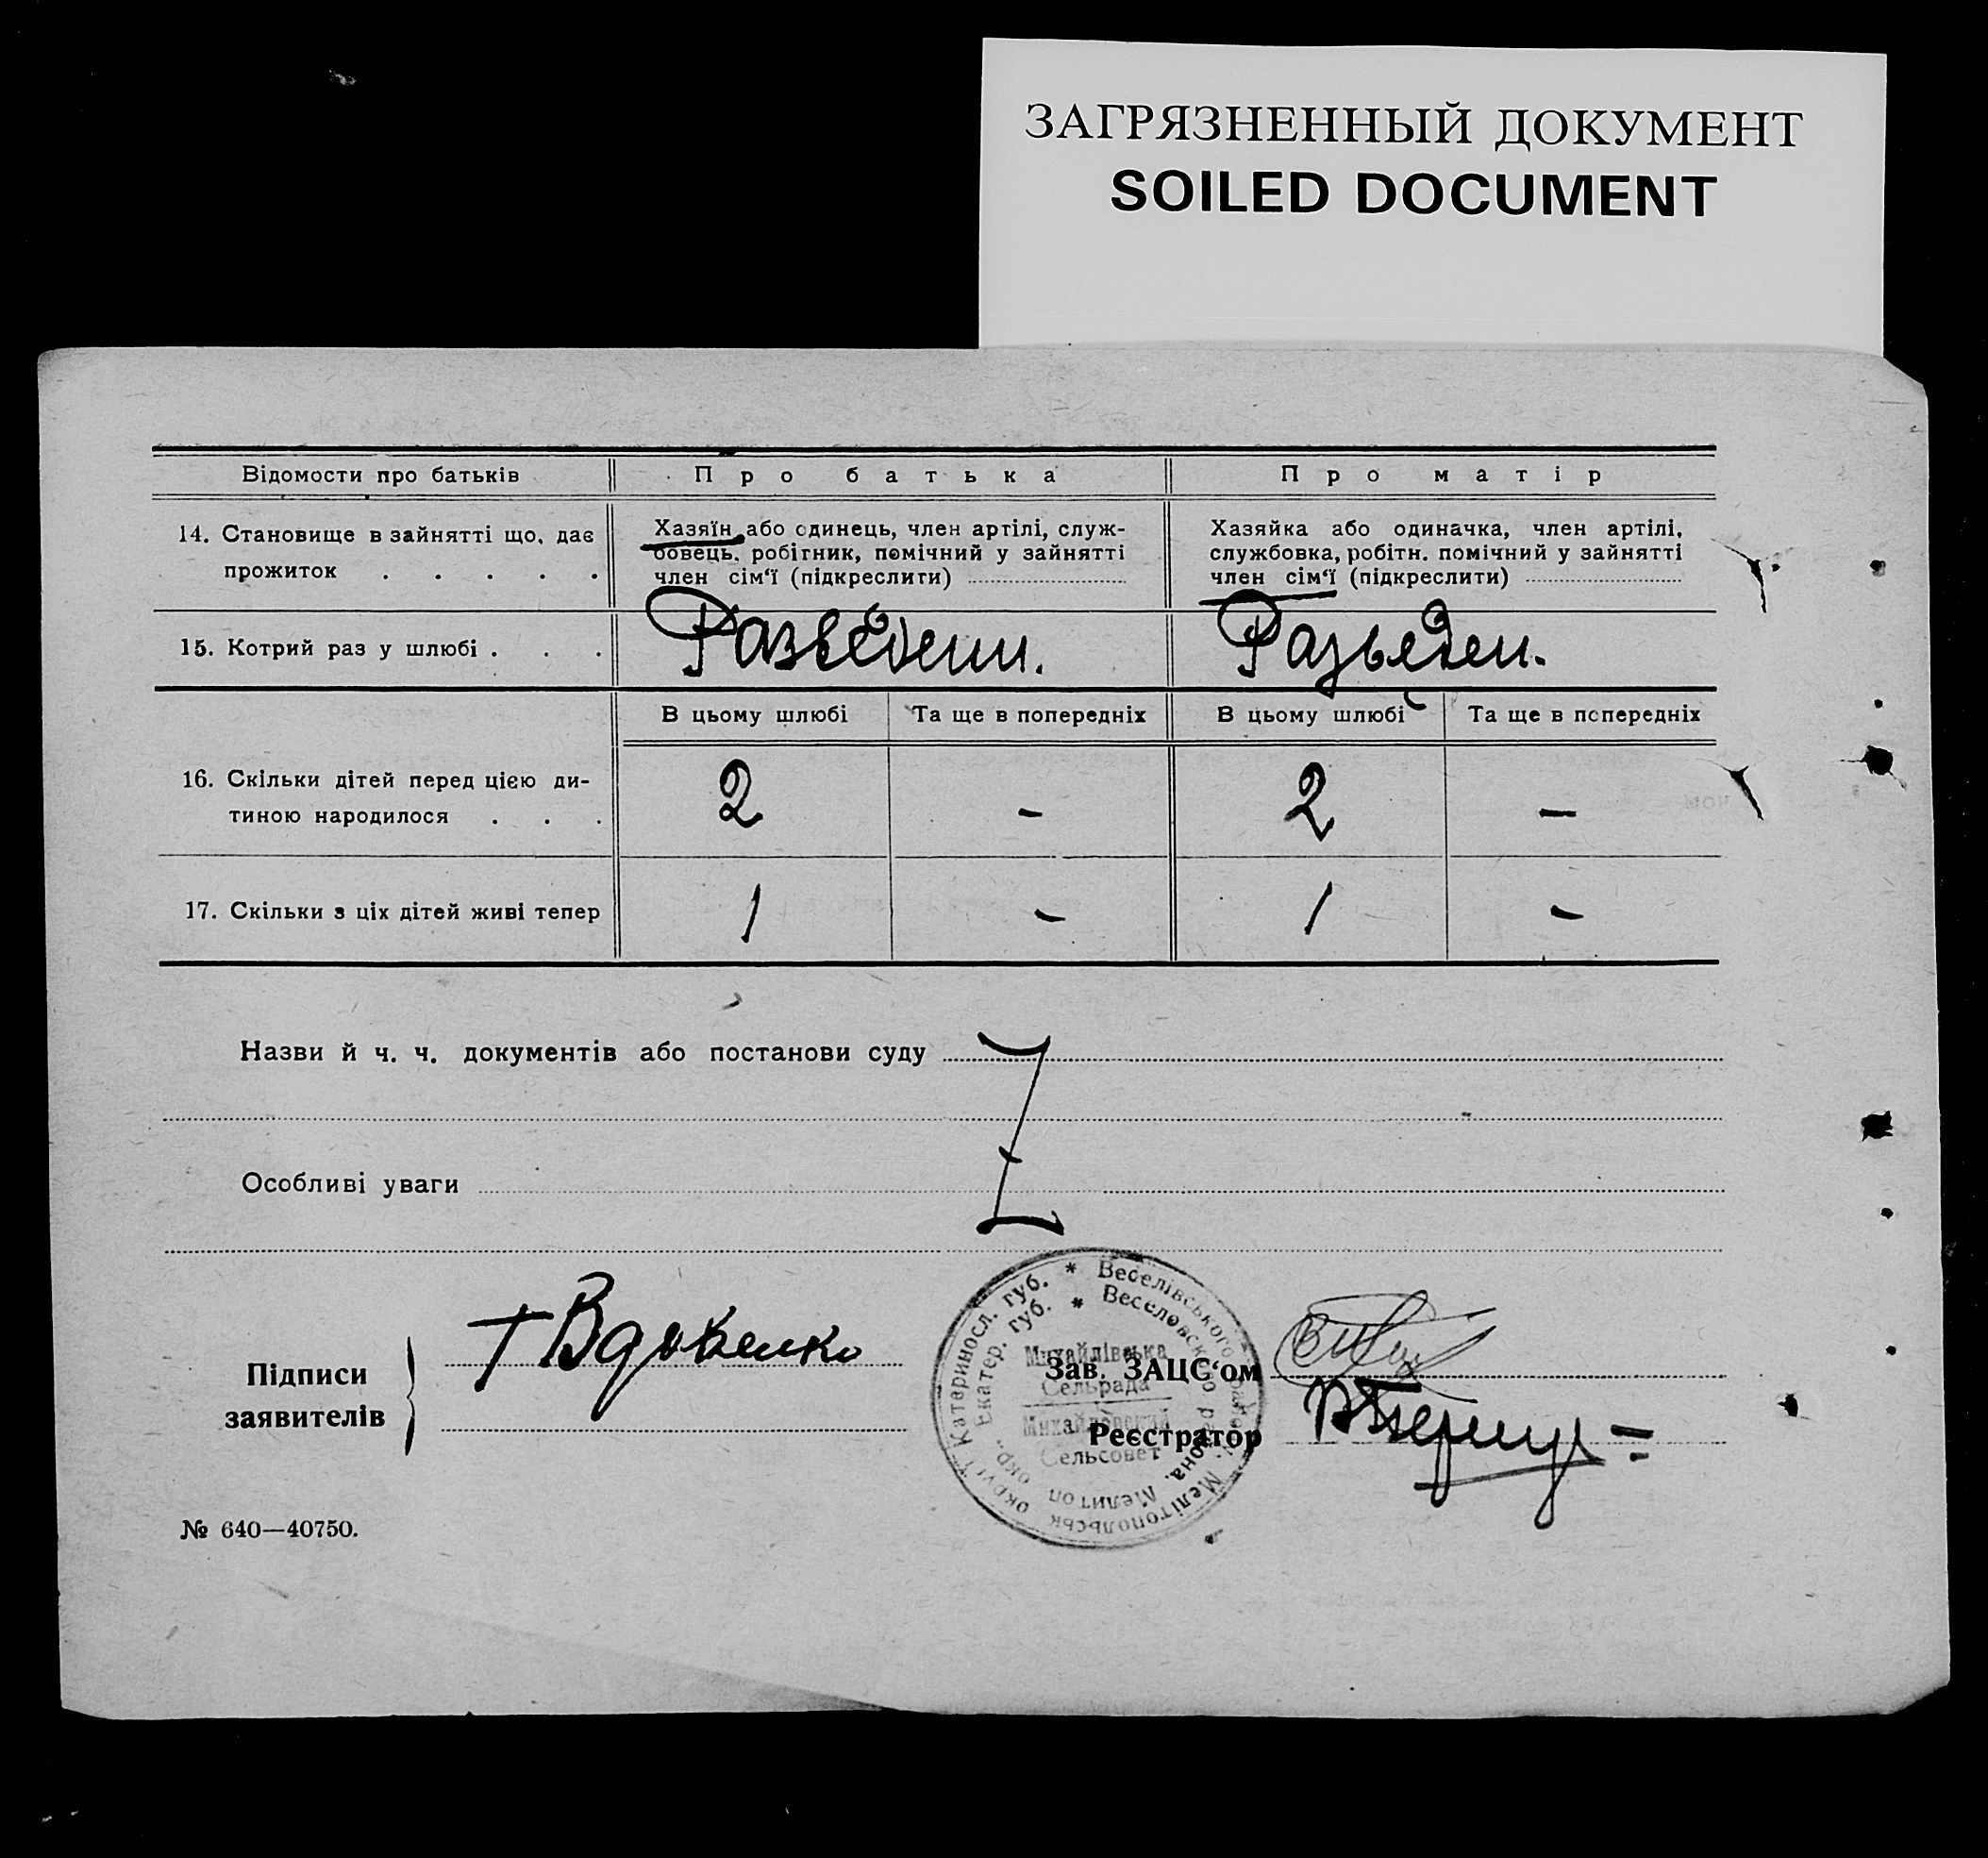 ЗАГРЯЗНЕННЫЙ ДОКУМЕНТ
SOILED DOCUMENT
Відомости про батьків
Про батька
Про матір
14. Становище в зайнятті що, дає
прожиток . . . . .
Хазяїн або одинець, член артілі, служ-
бовець, робітник, помічний у зайнятті
член сім‘ї (підкреслити)
Хазяйка або одиначка, член артілі,
службовка, робітн. помічний у зайнятті
член сім‘ї (підкреслити)
15. Котрий раз у шлюбі . . .
Разведени.
Разведен.
В цьому шлюбі
Та ще в попередніх
В цьому шлюбі
Та ще в попередніх
16. Скільки дітей перед цією ди-
тиною народилося . . .
2
-
2
-
17. Скільки з ціх дітей живі тепер
1
-
1
-
Назви й ч. ч. документів або постанови суду
Особливі уваги
Підписи
заявителів
Т Вдовенко
Веселівського району Мелітопольськ округ. Катериносл. губ. *
Веселовского района, Мелитоп окр. Екатер. губ. *
Михайлівська
Сельрада
Михайловский
Сельсовет
Зав. ЗАЦС‘ом
Реєстратор
№ 640—40750.